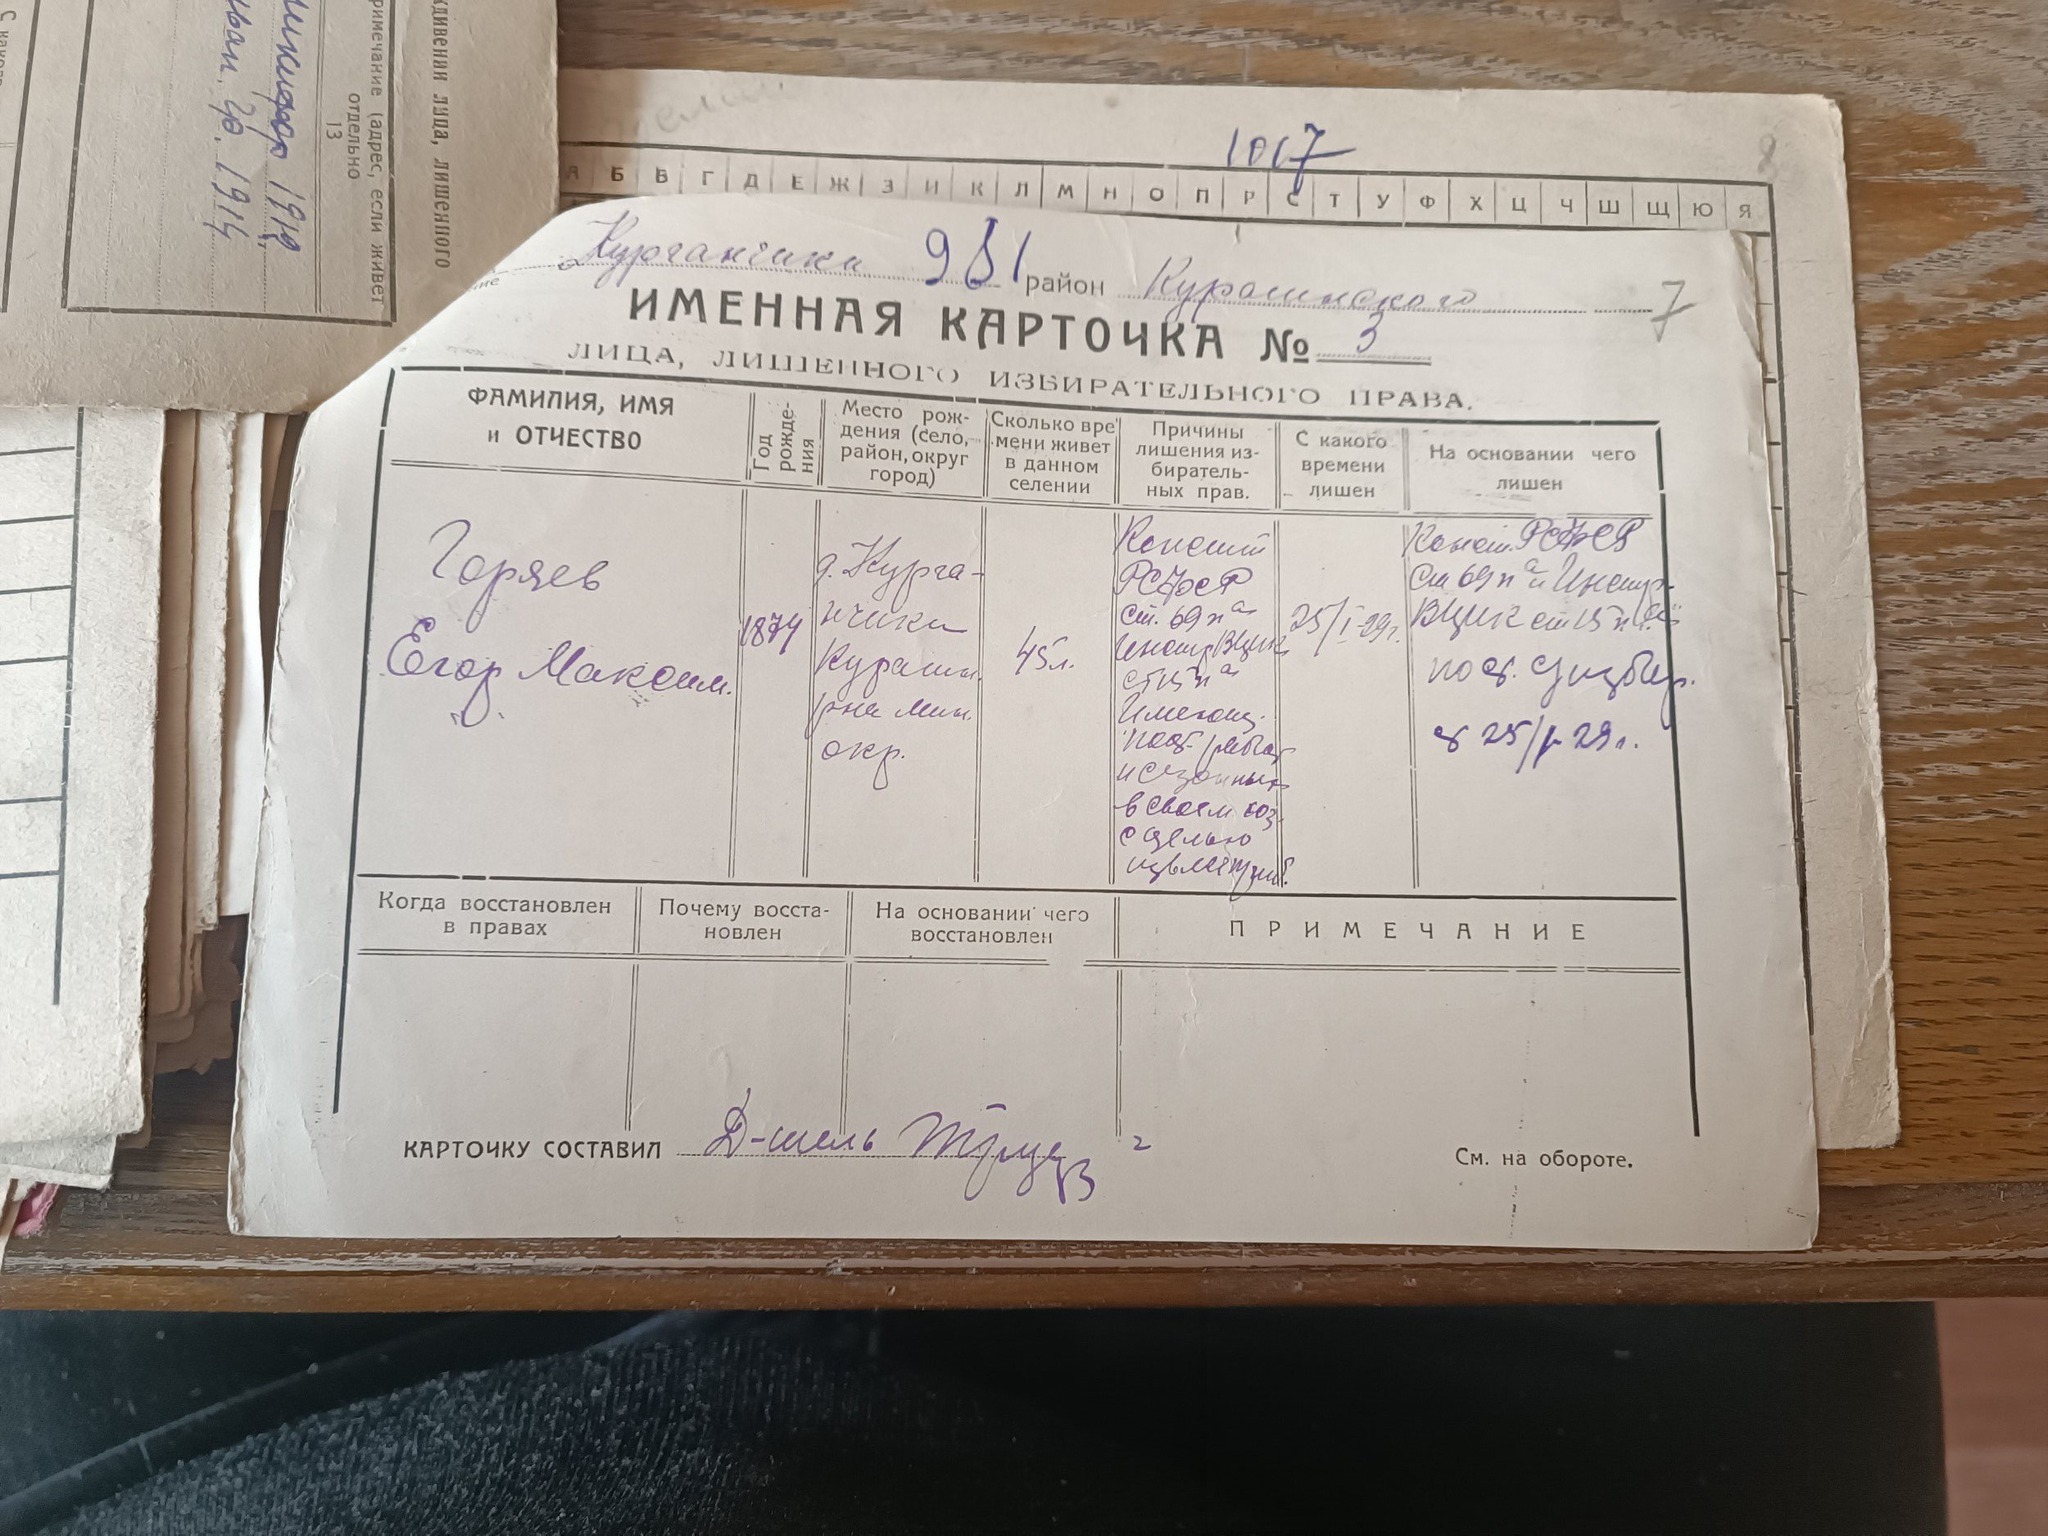 ждивении лица, лишенного
римечание (адрес, если живет
отдельно
13
1912
1914
1017
8
А Б В Г Д Е Ж З И К Л М Н О П Р С Т У Ф Х Ц Ч Ш Щ Ю Я
Курганчики 981 район Курашимского 7
ИМЕННАЯ КАРТОЧКА № 3
ЛИЦА, ЛИШЕННОГО ИЗБИРАТЕЛЬНОГО ПРАВА.
ФАМИЛИЯ, ИМЯ
и ОТЧЕСТВО
Год
рожде-
ния
Место рож-
дения (село,
район, округ
город)
Сколько вре
мени живет
в данном
селении
Причины
лишения из-
биратель-
ных прав.
С какого
времени
лишен
На основании чего
лишен
Горяев
Егор Максим.
1874
д. Курга-
нчики
Курашим.
рна
окр.
45 л.
Конст
РСФСР
ст. 69 п а
Инстр ВЦИК
ст 15 п а
Имеющ.
пост. рабоч
и сезонных
в своем хоз
с целью
25/I-29г.
Конст. РСФСР
Ст 69 п а и Инстр.
ВЦИК ст 15 п а
пост.
25/I 29 г.
Когда восстановлен
в правах
Почему восста-
новлен
На основании чего
восстановлен
ПРИМЕЧАНИЕ
КАРТОЧКУ СОСТАВИЛ
См. на обороте.